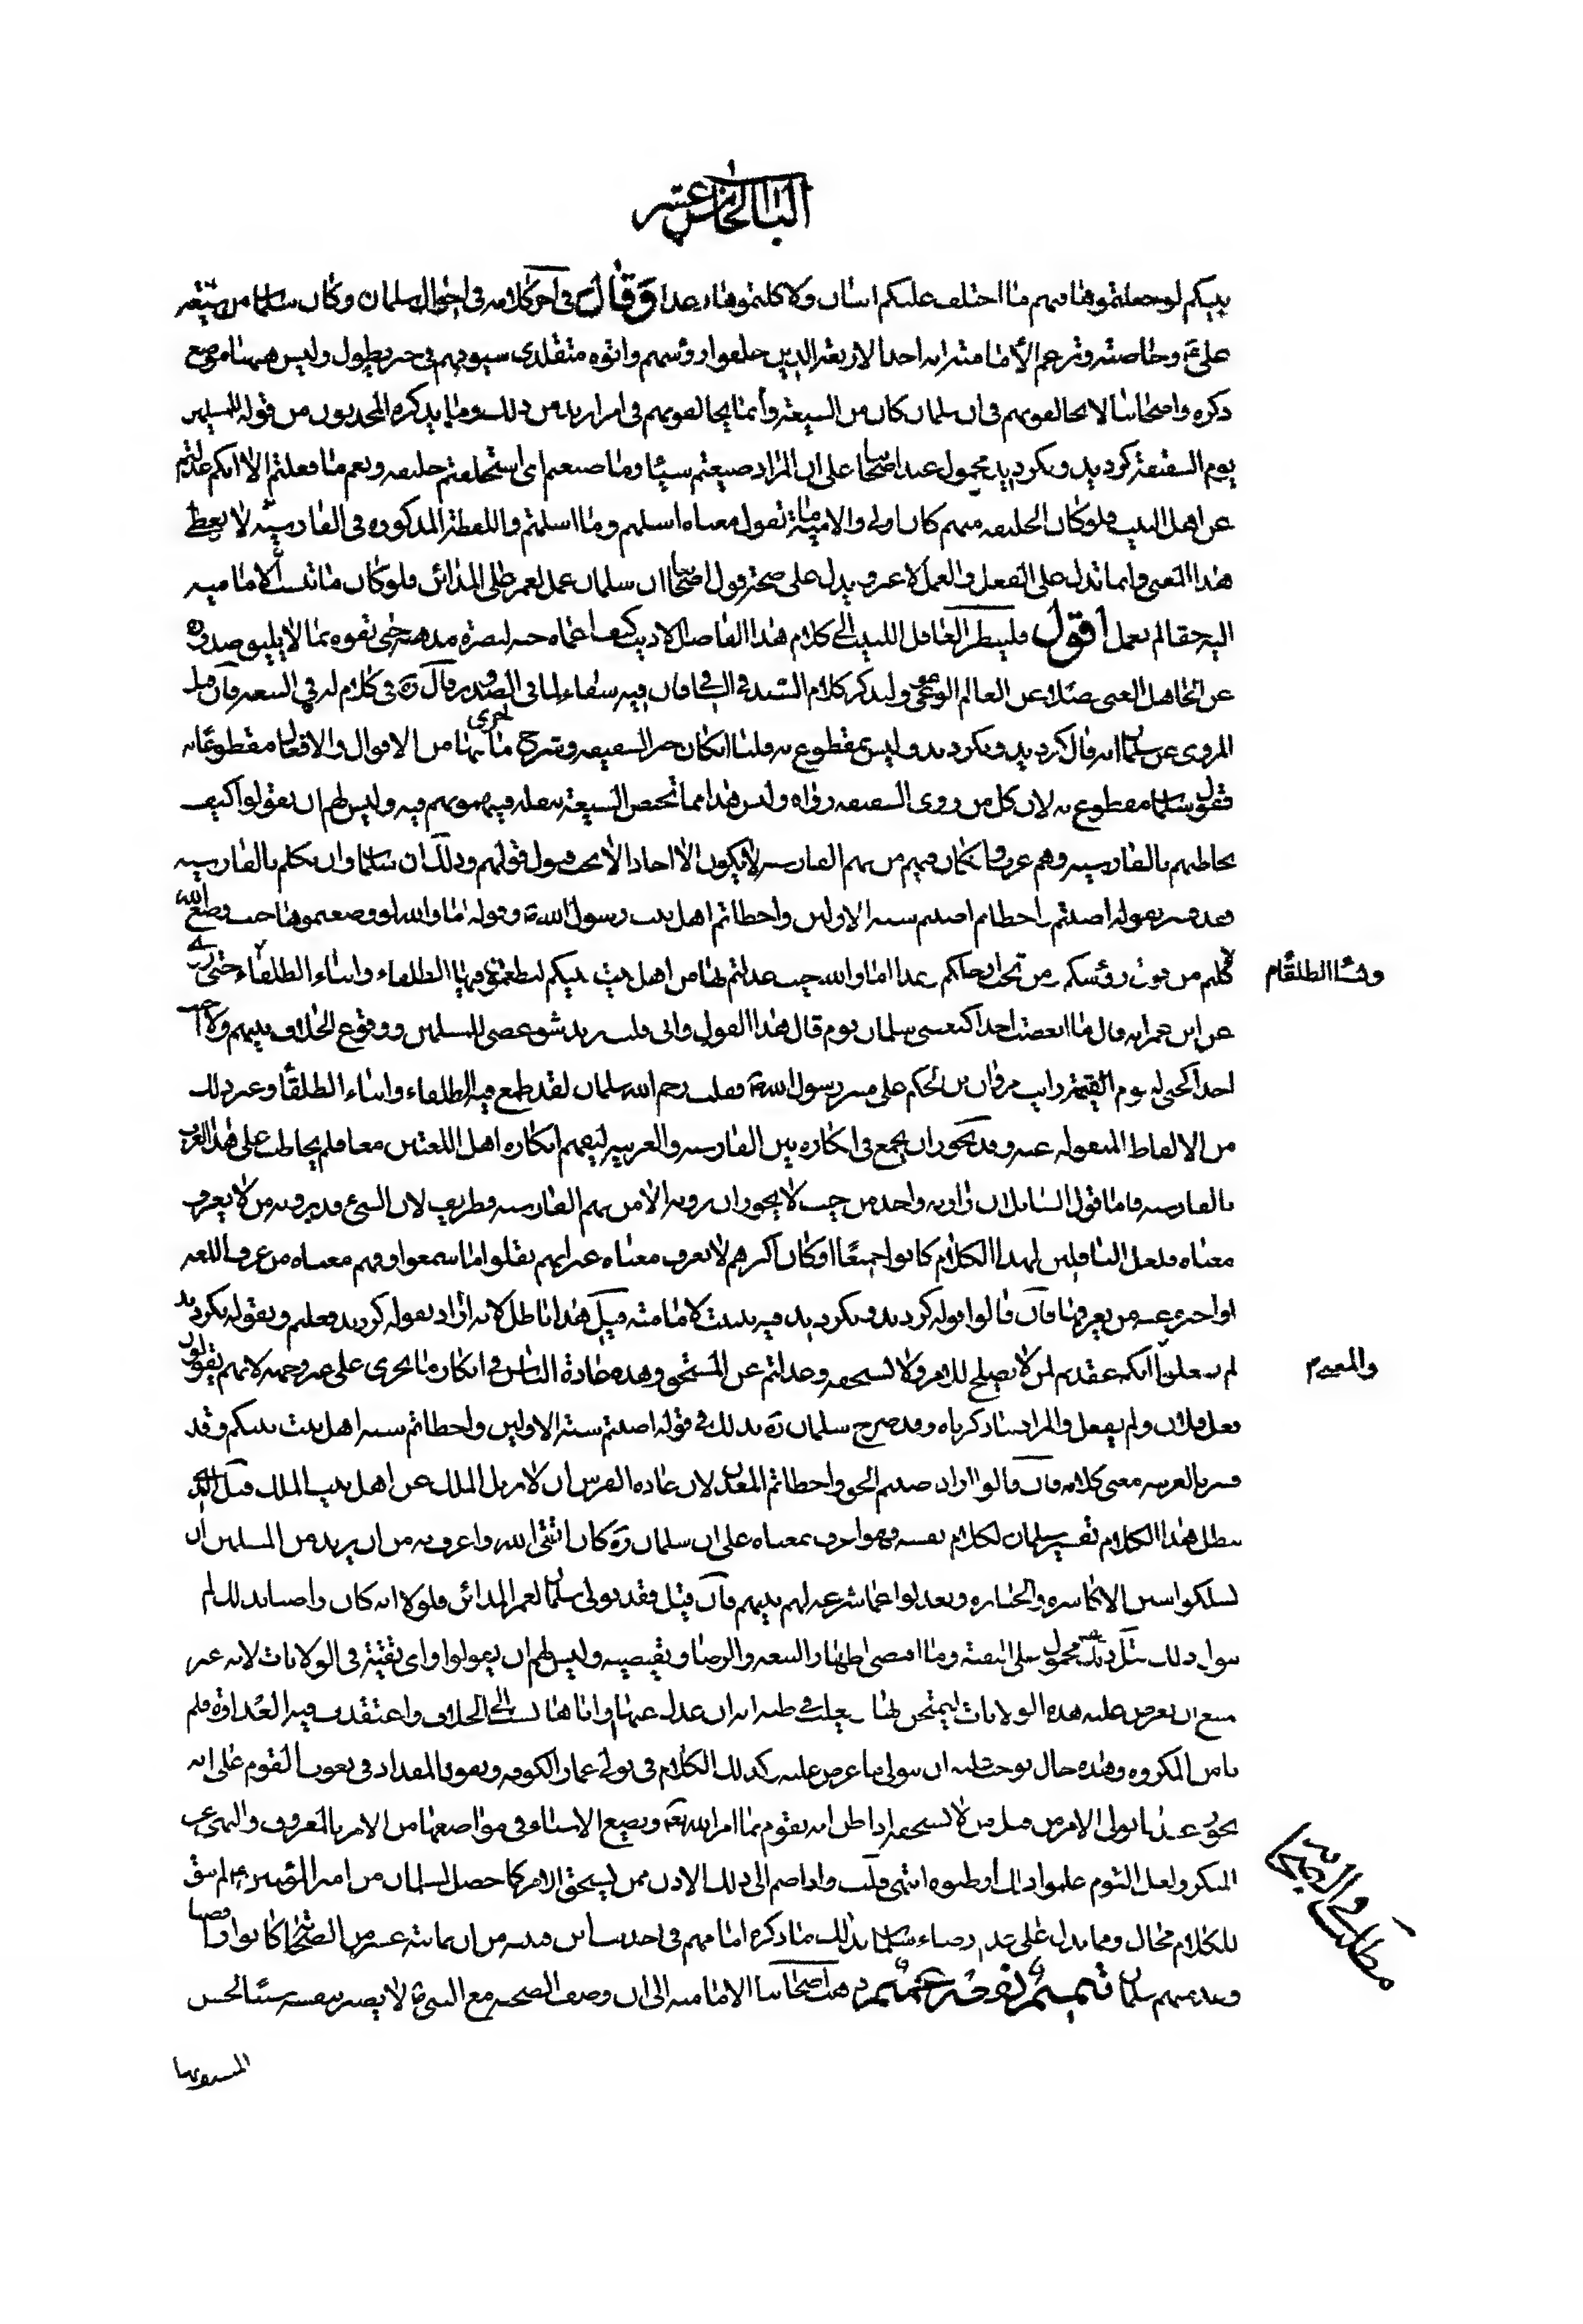 الباب الخامس عشر
بيتكم لو جعلتموها فيهم ما اختلف عليكم اثنان ولاكلتموها رغدا وقال في اخر كلامه في احوال سلمان وكان سلمان من شيعة
علي ع وخاصته وتزعم الامامية انه احد الاربعة الذين حلقوا رؤسهم واتوه متقلدي سيوفهم في خبر يطول وليس هيهنا موضع
ذكره واصحابنا لا يخالفونهم في ان سلمان كان من الشيعة وانما يخالفونهم في امر ازيد من ذلك وما يذكره المحدثون من قوله للمسلمين
يوم السقيفة كرديد ونكرديد محمول عند اصحابنا على ان المراد صنعتم شيئا وما صنعتم اي استخلفتم خليفة ونعم ما فعلتم الا انكم عدلتم
عن اهل البيت فلو كان الخليفة منهم كان اولى والامامية تقول معناه اسلمتم وما اسلمتم واللفظة المذكورة في الفارسية لا تعطي
هذا المعنى وانما تدل على الفعل والعمل لا غير ويدل على صحة قول اصحابنا ان سلمان عمل لعمر على المدائن فلو كان ما تنسبه الامامية
اليه حقا لم يعمل اقول فلينظر العاقل اللبيب الى كلام هذا الفاضل الاديب كيف اعماه حبه لنصرة مذهبه حتى تفوه بما لا يليق صدوره
عن الجاهل الغبي فضلا عن العالم ولنذكر كلام السيد في الشافي فان فيه شفاء لما في الصدور قال ره في كلام له في البيعة فان قيل
المروي عن سلمان انه قال كرديد ونكرديد وليس بمقطوع به قلنا ان كان خبر السقيفة وشرح ما جرى فيها من الاقوال والافعال مقطوعا به
فقول سلمان مقطوع به لان كل من روى السقيفة رواه وليس هذا مما تختص الشيعة بنقله فيتهمونهم فيه وليس لهم ان يقولوا كيف
يخاطبهم بالفارسية وهم عرب وان كان فيهم من فهم الفارسية لا يكون الا احادا لا يجب قبول قولهم وذلك ان سلمان وان تكلم بالفارسية
فقد فسره بقوله اصبتم واخطاتم اصبتم سنة الاولين واخطاتم اهل بيت رسول الله ص وقوله اما والله لو وضعتموها حيث وضعها الله
لاكلتم من فوق رؤسكم ومن تحت ارجلكم رغدا اما والله حيث عدلتم بها من اهل بيت نبيكم ليطمعن فيها الطلقاء وابناء الطلقاء حتى روي
وابناء الطلقاء م
عن ابن عمر انه قال ما ابغضت احدا كبغضي سلمان يوم قال هذا القول واني قلت يريد شق عصى المسلمين ووقوع الخلاف بينهم ولا احببت
احدا كحبي له يوم رايت مروان بن الحكم على منبر رسول الله ص فقلت رحم الله سلمان لقد طمع فيها الطلقاء وابناء الطلقاء وغير ذلك
من الالفاظ المنقولة عنه وقد يجوز ان يجمع في انكاره بين الفارسية والعربية ليفهم انكاره اهل اللغتين معا فلم يخاطب على هذا العرب
بالفارسية فاما قول السائل ان راويه واحد من حيث لا يجوز ان يرويه الا من فهم الفارسية فطريف لان الشيء قد يرويه من لا يعرف
معناه فلعل الناقلين لهذا الكلام كانوا جميعا او كان اكثرهم لا يعرف معناه غير انهم نقلوا ما سمعوا وفهم معناه من عرف اللغة
او اخبره عنه من يعرفها فان قالوا قوله كرديد ونكرديد فيه تثبيت لامامته قيل هذا باطل لانه اراد بقوله كرديد فعلتم وبقوله نكرديد
لم تفعلوا انكم عقدتم لمن لا يصلح للامر ولا يستحقه وعدلتم عن المستحق وهذه عادة الناس في انكار ما يجري على غير وجهه لانهم يقولون
والمعنى م
فعل فلان ولم يفعل والمراد ما ذكرناه وقد صرح سلمان ره بذلك في قوله اصبتم سنة الاولين واخطاتم سنة اهل بيت نبيكم وقد
فسر بالعربية معنى كلامه فان قالوا اراد اصبتم الحق واخطاتم المعدن لان عادة الفرس ان لا يزيل الملك عن اهل بيت الملك قيل الذي
يبطل هذا الكلام تفسير سلمان لكلام نفسه فهو اعرف بمعناه على ان سلمان ره كان اتقى الله واعرف به من ان يريد من المسلمين ان
يسلكوا سنن الاكاسرة والجبابرة ويعدلوا عما شرعه لهم نبيهم فان قيل فقد تولى سلمان لعمر المدائن فلولا انه كان راضيا بذلك لم
يتول ذلك قيل ذلك محمول على التقية وما اقتضى اظهار البيعة والرضا يقتضيه وليس لهم ان يقولوا واي تقية في الولايات لانه غير
ممتنع ان يعرض عليه هذه الولايات ليمتحن بها ويغلب في ظنه انه ان عدل عنها واباها نسب الى الخلاف واعتقدت فيه العداوة فلم
يامن المكروه وهذه حال توجب عليه ان يتولى ما عرض عليه وكذلك الكلام في تولي عمار الكوفة ونفوذ المقداد في بعوث القوم على انه
يجوز عندنا تولي الامر من قبل من لا يستحقه اذا ظن انه يقوم بما امر الله تع ويضع الاشياء في مواضعها من الامر بالمعروف والنهي عن
المنكر ولعل القوم علموا ذلك او ظنوه انتهى قلت واذا ضم الى ذلك الاذن ممن يستحق الامر كما حصل لسلمان من امير المؤمنين ع لم يبق
للكلام مجال ومما يدل على عدم رضاء سلمان بذلك ما ذكره امامهم في
وعد منهم سلمان تتميم نفعه عميم ذهب اصحابنا الامامية الى ان وصف الصحبة مع النبي ص لا يصير بنفسه سببا لحسن